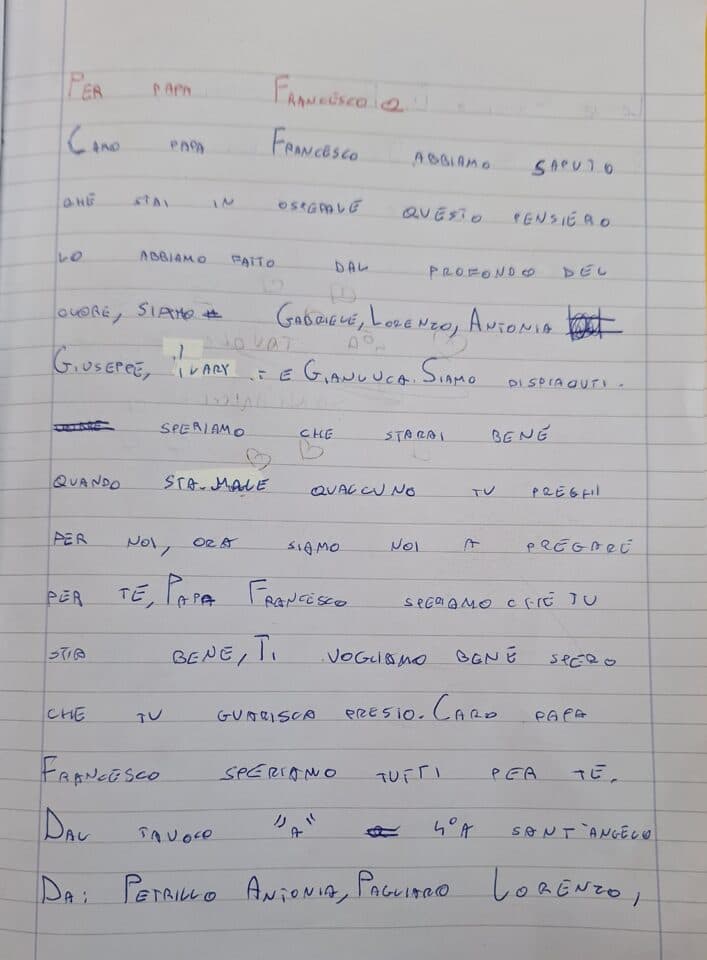 PER PAPA FRANCESCO
CARO PAPA FRANCESCO ABBIAMO SAPUTO
CHE STAI IN OSPEDALE QUESTO PENSIERO
LO ABBIAMO FATTO DAL PROFONDO DEL
CUORE, SIAMO GABRIELE, LORENZO, ANTONIA
GIUSEPPE, IVARY E GIANLUCA. SIAMO DISPIACIUTI.
SPERIAMO CHE STARAI BENE
QUANDO STA MALE QUALCUNO TU PREGHI
PER NOI, ORA SIAMO NOI A PREGARE
PER TE, PAPA FRANCESCO SPERIAMO CHE TU
STIA BENE, TI VOGLIAMO BENE SPERO
CHE TU GUARISCA PRESTO. CARO PAPA
FRANCESCO SPERIAMO TUTTI PER TE.
DAL TAVOLO "A" 4°A SANT'ANGELO
DA: PETRILLO ANTONIA, PAGLIARO LORENZO,